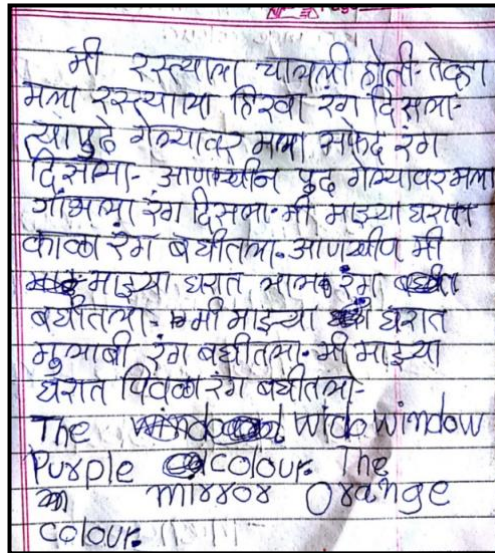 मी रस्त्याला चालली होती. तेव्हा
मला रस्त्याला हिरवा रंग दिसला.
त्यापुढे गेल्यावर मला सफेद रंग
दिसला. आणखीन पुढ गेल्यावर मला
रंग दिसला. मी माझ्या घरात
काळा रंग बघीतला. आणखीन मी
माझ्या घरात लाल रंग
बघीतला. मी माझ्या घरात
गुलाबी रंग बघीतला. मी माझ्या
घरात पिवळा रंग बघीतला.
The wido window
Purple colour. The
mirror Orange
colour.